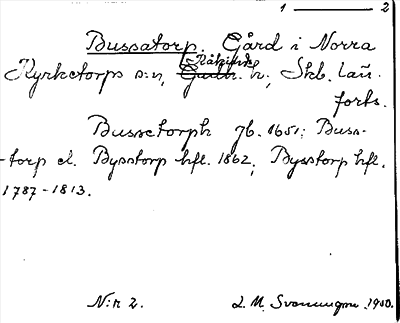 1 ——— 2
Bussatorp. Gård i Norra
Kåkinds
Kyrketorps s:n, Gudh. h., Skb. län.
forts.
Bussetorph jb. 1651; Buss-
-torp el. Bysstorp hfl. 1862; Bysstorp hfl.
1787-1813.
N:r 2.
L. M. Svenungson. 1900.